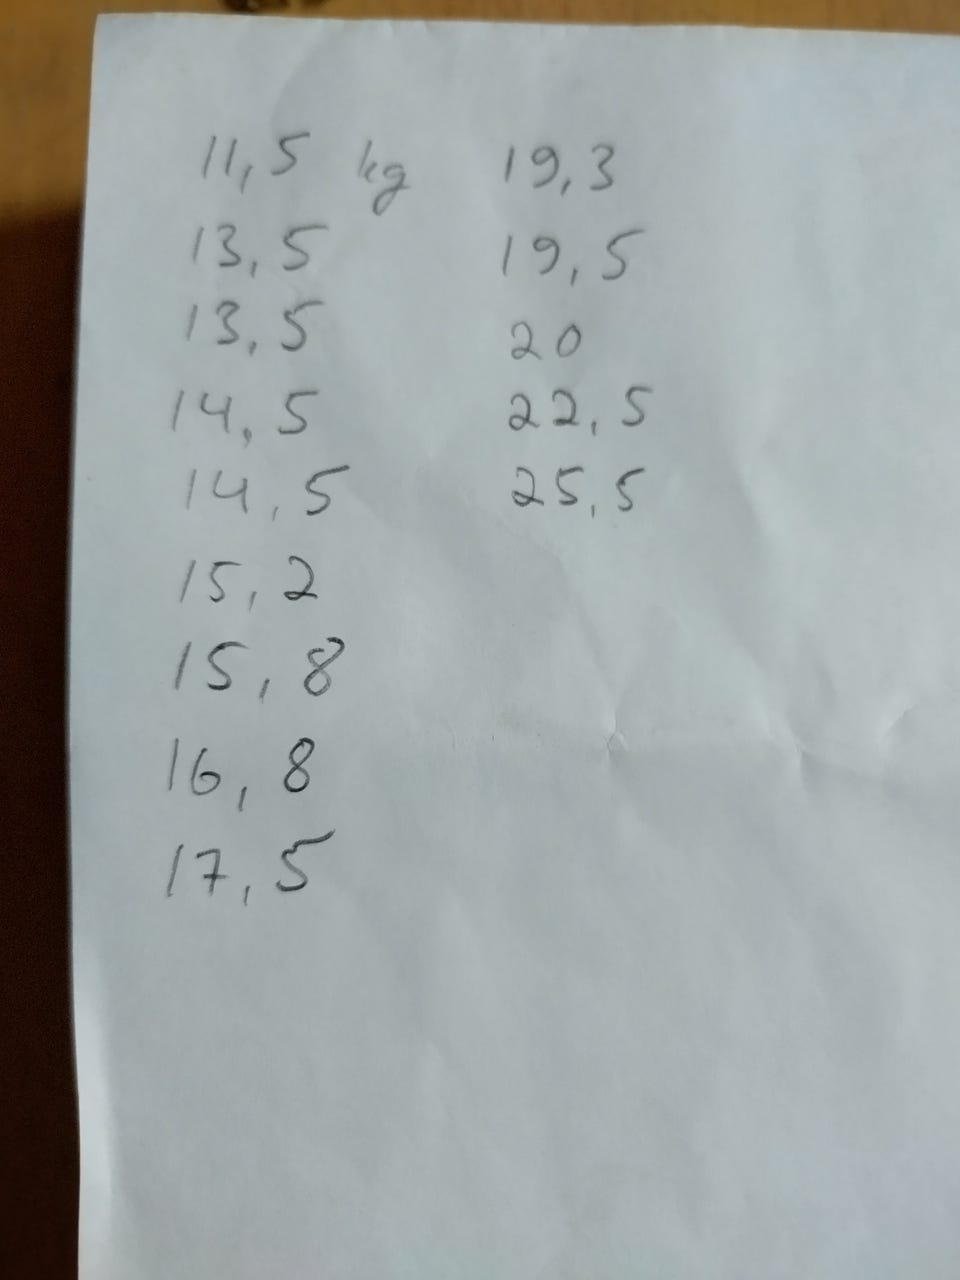 11,5 kg
13,5
13,5
14,5
14,5
15,2
15,8
16,8
17,5
19,3
19,5
20
22,5
25,5